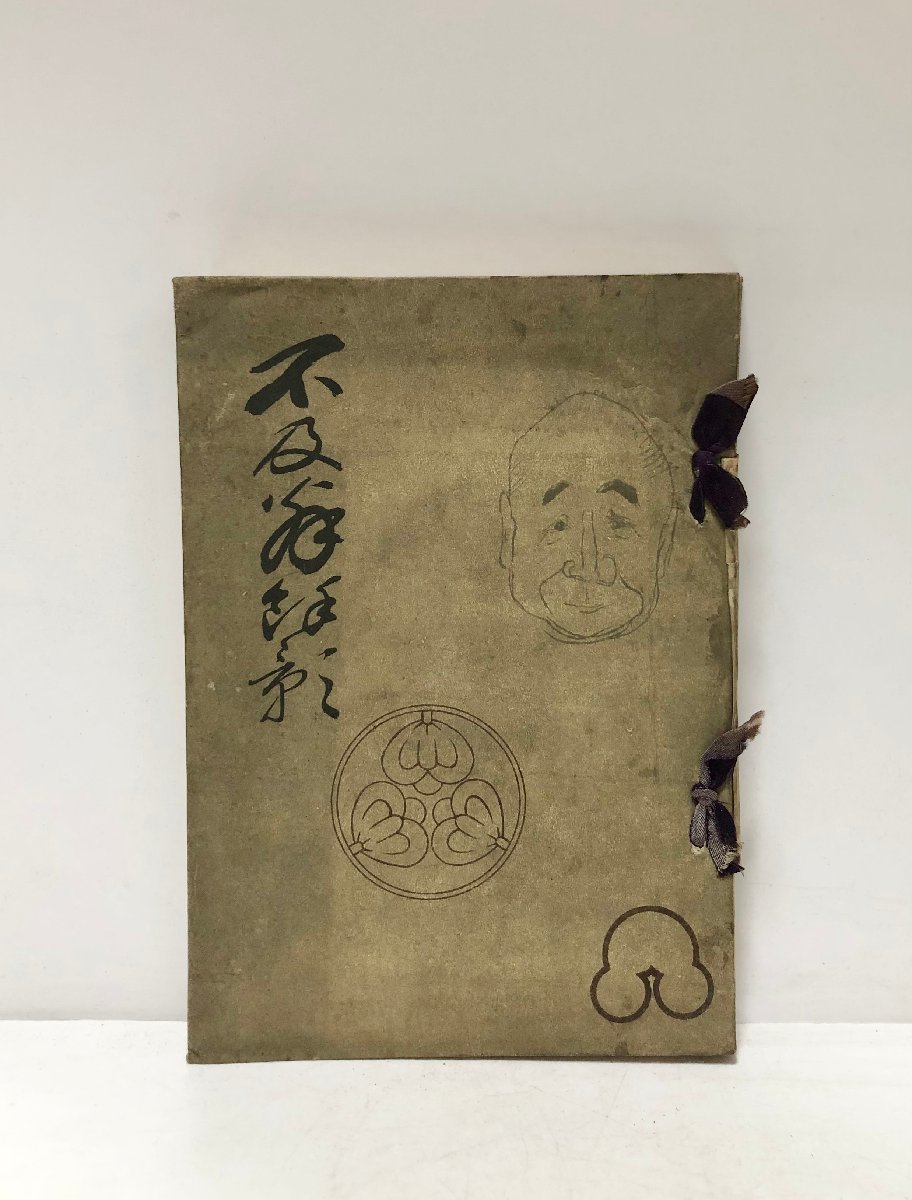 不及翁餘影